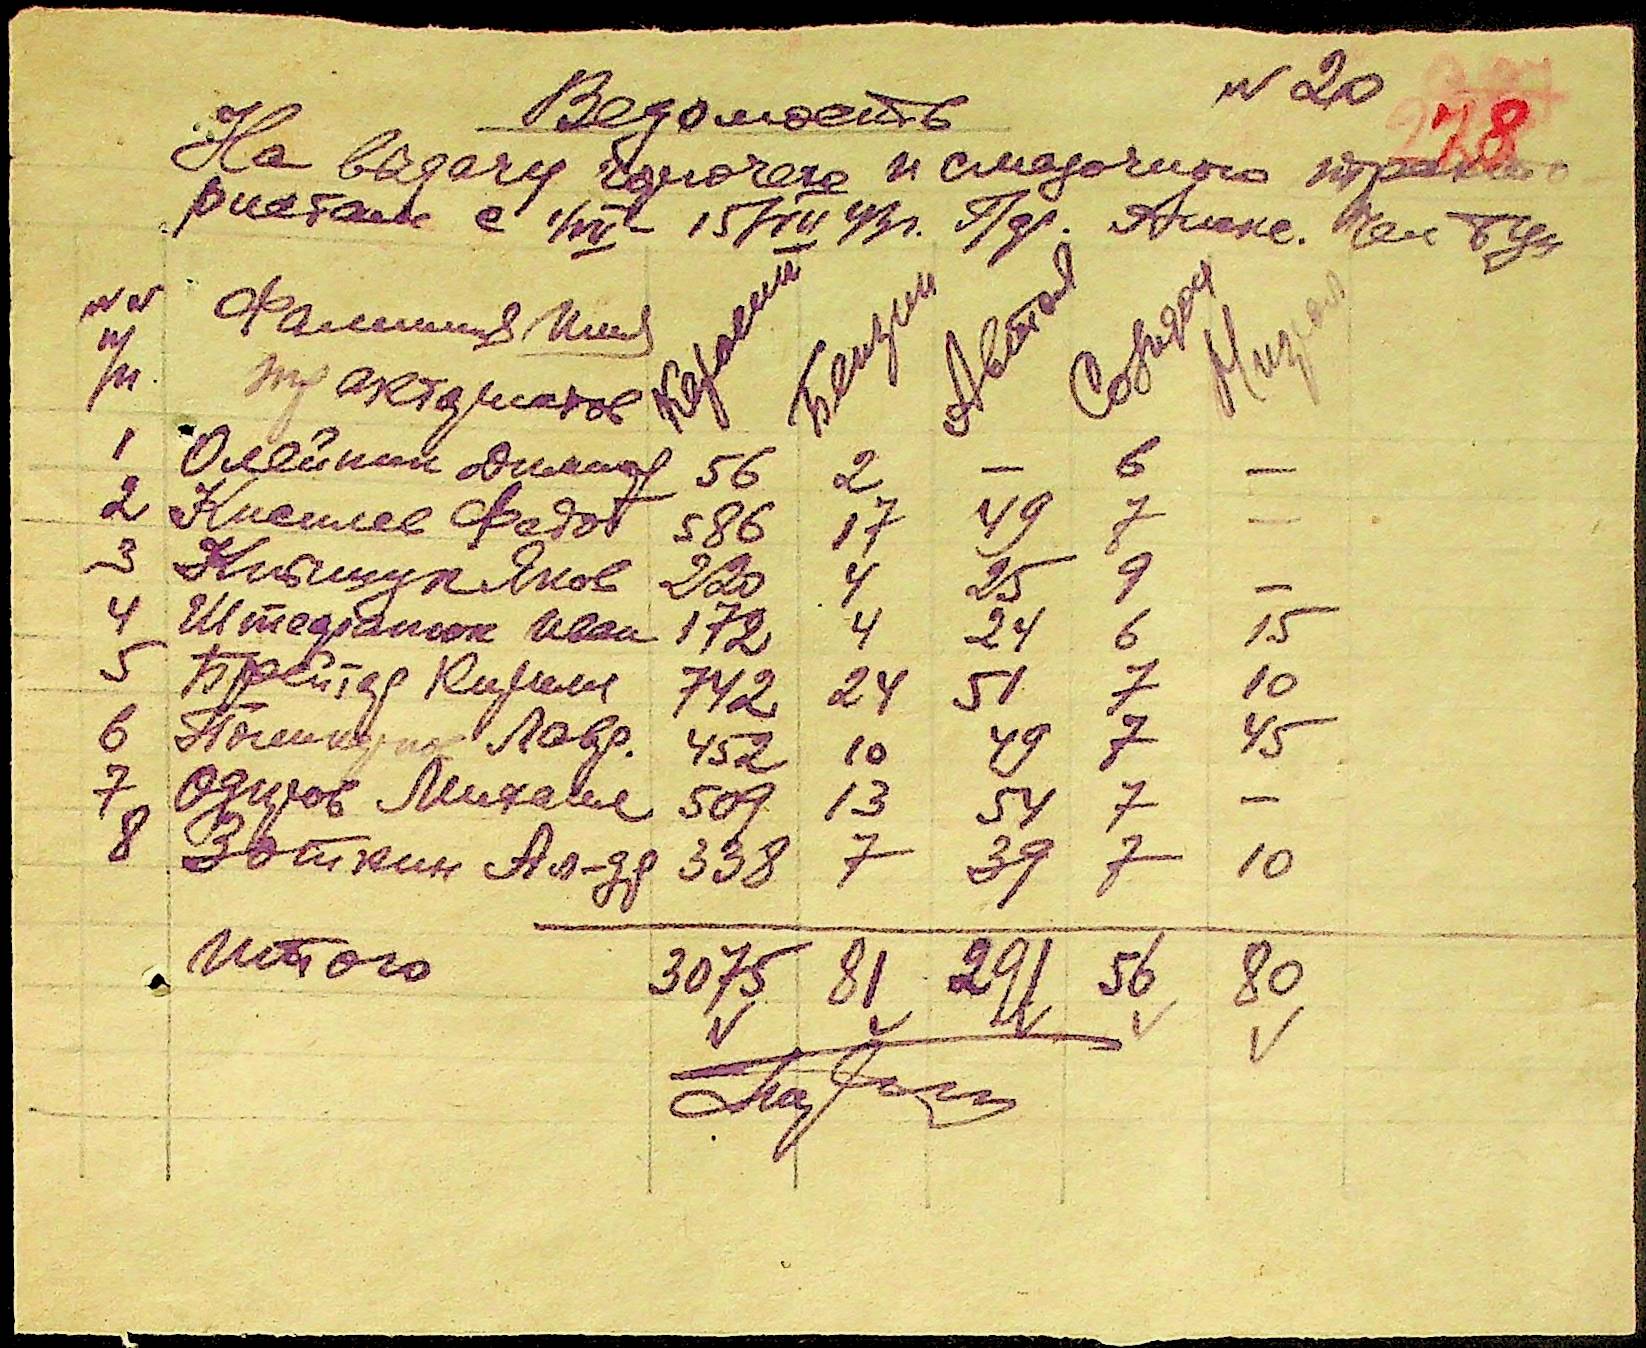 № 20
78
Ведомость
На выдачу горючего и смазочного тракто
ристам с 1/VII - 15/VII 43 г.
№ №
п/п
Фамилия Имя
Керосин Бензин Автол Солидол Нигрол
1 Олейник 56 2 — 6 —
2 Федот 586 17 49 7 —
3 Яков 220 4 25 9 —
4 Иван 172 4 24 6 15
5 Брейтар Кирилл 742 24 51 7 10
6 Лавр. 452 10 49 7 45
7 Михаил 509 13 54 7 —
8 Зоткин Ал-др 338 7 39 7 10
Итого 3075 81 291 56 80